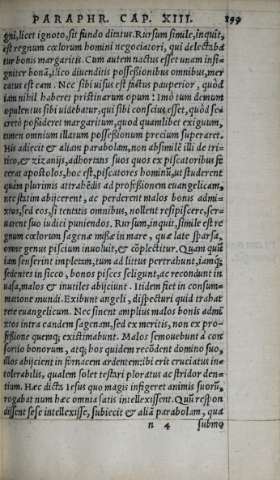 PARAPHR. CAP. XIII. 899
gni, licet ignoto, sit fundo diutus. Rursum simile, inquit,
est regnum cœlorum homini negociatori, qui delectaba
tur bonis margaritis. Cum autem nactus esset unam insi=
gniter bonā, ilico diuenditis possessionibus omnibus, mer
catus est eam. Nec sibi uisus est factus pauperior, quòd
iam nihil haberet pristinarum opum: imò tum demum
opulentus sibi uidebatur, qui sibi conscius esset, quòd se=
cretò possideret margaritum, quod quamlibet exiguum,
tamen omnium illarum possessionum precium superaret.
His adiecit & aliam parabolam, non absimilē illi de tri=
tico, & zizanijs, adhortans suos quos ex piscatoribus fe
cerat apostolos, hoc est, piscatores hominū, ut studerent
quàm plurimis attrahēdis ad professionem euangelicam,
nec statim abijcerent, ac perderent malos bonis admi=
xtos, sed eos, si tentatis omnibus, nollent resipiscere, ser=
uarent suo iudici puniendos. Rursum, inquit, simile est re
gnum cœlorum sagenæ missæ in mare, quæ latè sparsa,
omne genus piscium inuoluit, & cōplectitur. Quam quū
iam senserint impletam, tum ad littus pertrahunt, iamq́;
sedentes in sicco, bonos pisces seligunt, ac recondunt in
uasa, malos & inutiles abijciunt. Itidem fiet in consum=
matione mundi. Exibunt angeli, dispecturi quid trahat
rete euangelicum. Nec sinent amplius malos bonis admi
xtos intra eandem sagenam, sed ex meritis, non ex pro=
fessione quemq; existimabunt. Malos semouebunt à con
sortio bonorum, atq; hos quidem recōdent domino suo,
illos abijcient in fornacem ardentem: ibi erit cruciatus in=
tolerabilis, qualem solet testari ploratus ac stridor den=
tium. Hæc dicta Iesus quo magis infigeret animis suorū,
rogabat num hæc omnia satis intellexissent. Quū respon
dissent sese intellexisse, subiecit & aliā parabolam, qua
n 4 submo